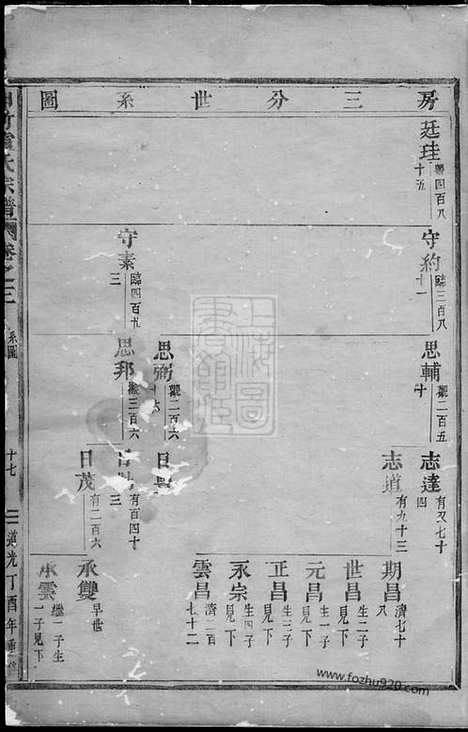 房三分世系圖
廷珪
豐四百八
十五
守約
臨三百八
十一
守素
臨四百九
三
思輔
觀二百五
十
思弼
觀二百六
十六
思邦
觀三百六
志達
有又七十
四
志道
有九十三
有百四十
三
日茂
有二百六
期昌
濟七十
八
世昌
生二子
見下
元昌
生一子
見下
正昌
生三子
見下
永宗
生四子
見下
雲昌
濟二百
七十二
承雙
早世
承雲
繼一子生
一子見下
氏宗譜
卷之三
系圖
十七
道光丁酉年重修
上海圖書館藏
www.fozhu920.com